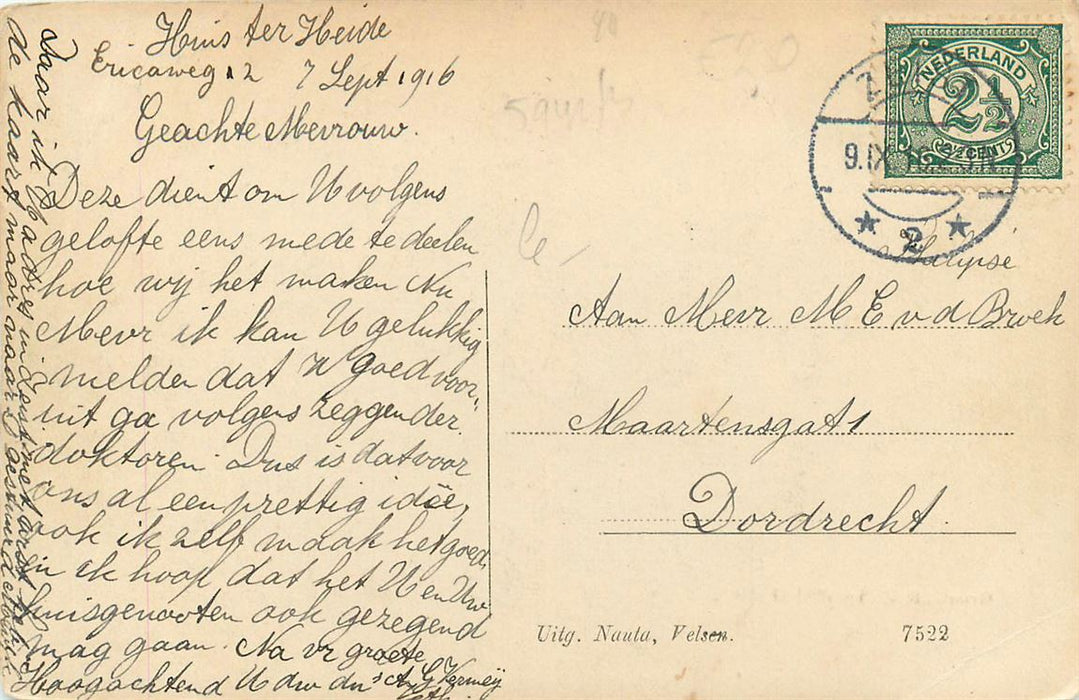 Huis ter Heide
Ericaweg 12 7 Sept 1916
Geachte Mevrouw.
Deze dient om U volgens
gelofte eens mede te deelen
hoe wij het maken Nu
Mevr ik kan U gelukkig
melden dat 't goed voor-
uit ga volgens zeggen der
doktoren. Dus is dat voor
ons al een prettig idée,
ook ik zelf maak het goed
en ik hoop dat het U en Uw
huisgenooten ook gezegend
mag gaan. Na vr groete
Hoogachtend U dw dns A G Vermeij
Daar ik Uw adres in
de kaart maar naar gestuurd
NEDERLAND
2½
2½ CENT
9.IX
2
Aan Mevr M E v d Broek
Maartensgat 1
Dordrecht.
Uitg. Nauta, Velsen.
7522